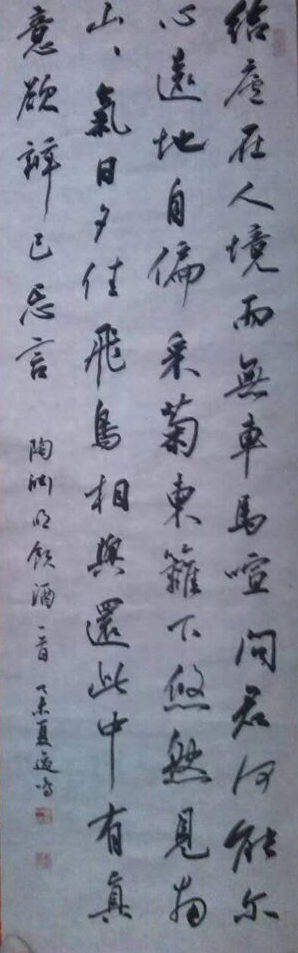 結廬在人境而無車馬喧問君何能尔
心遠地自偏采菊東籬下悠然見南
山、氣日夕佳飛鳥相與還此中有真
意欲辨已忘言 陶渊明飲酒一首 乙未夏